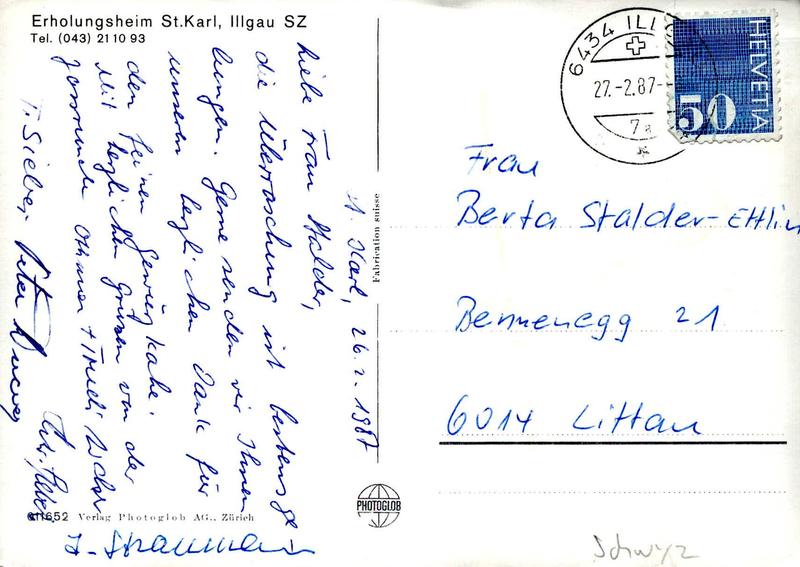 Erholungsheim St.Karl, Illgau SZ
Tel. (043) 21 10 93
St. Karl, 26.2.1987
Liebe Frau Stalder,
die Überraschung ist bestens ge
lungen. Gerne senden wir Ihnen
unseren herzlichen Dank für
den feinen Gewürzkahe.
Mit herzlichen Grüssen von der
Othmar + Trudi
T. Sieber
Peter
Fabrication suisse
611652 Verlag Photoglob AG., Zürich
PHOTOGLOB
6434 ILLG
27.-2.87-
7a
HELVETIA
50
Frau
Berta Stalder-Ettlin
Bermenegg 21
6014 Littau
Schwyz